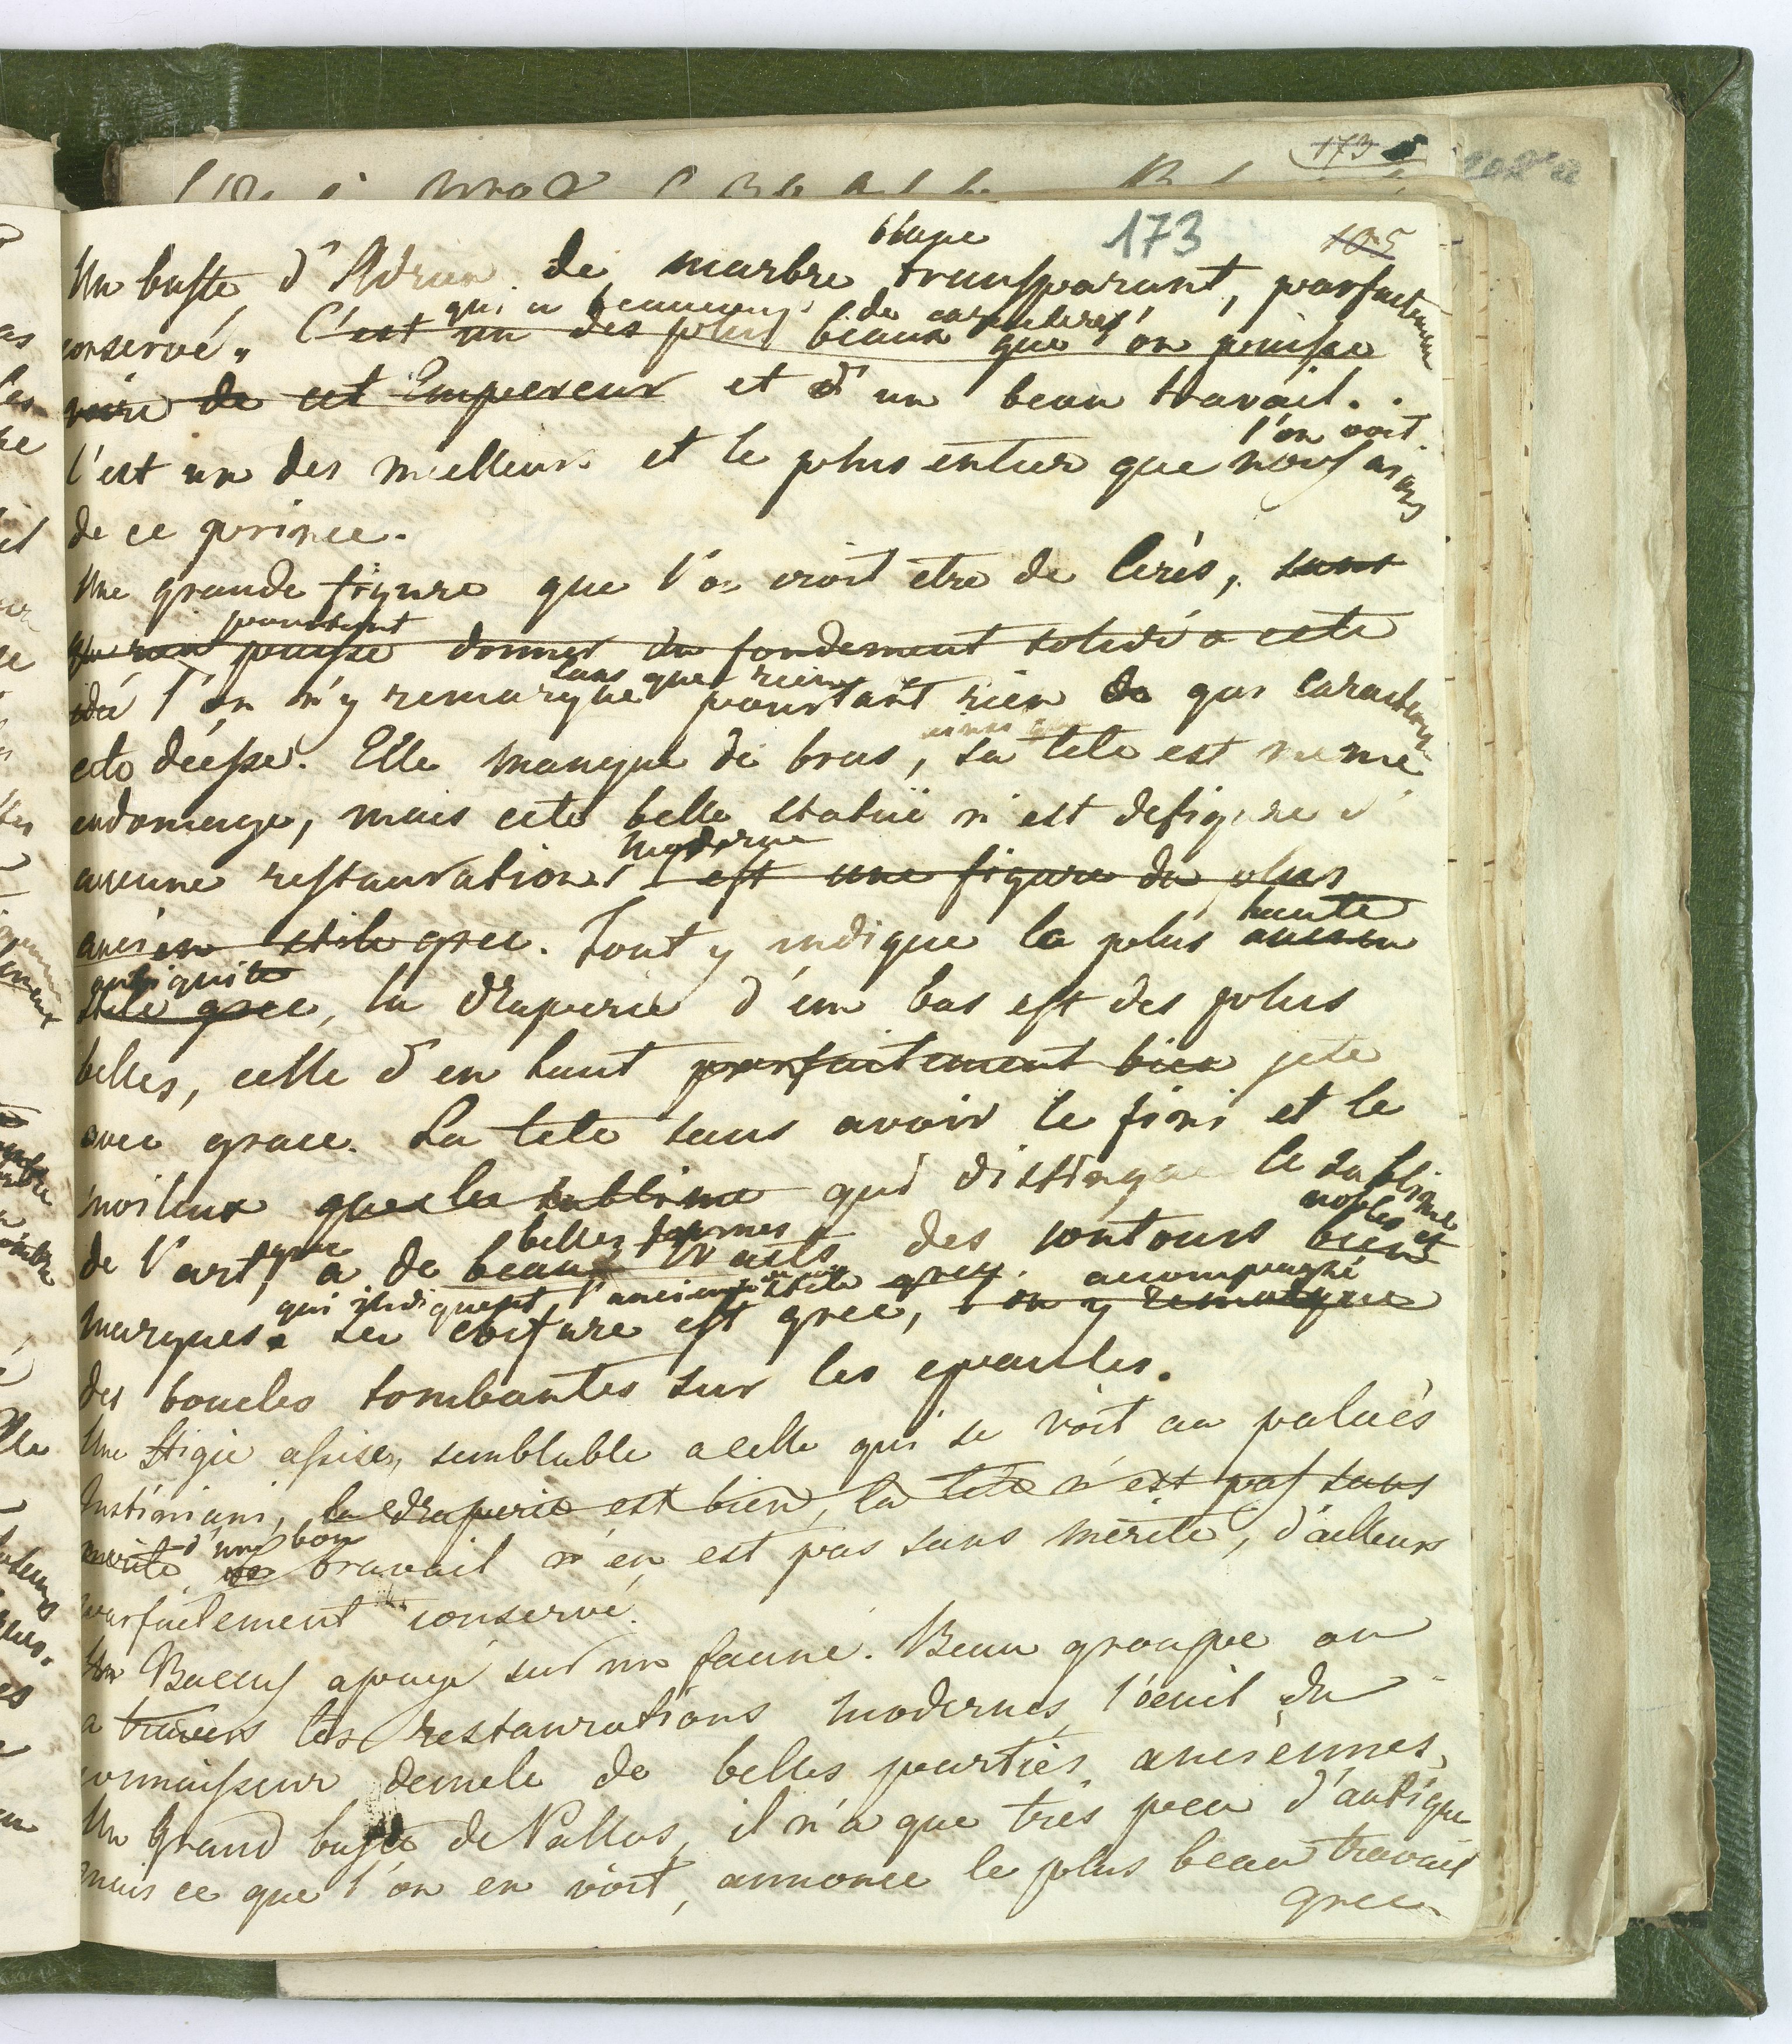 173
105
Un buste d'Adrien de marbre transparant, parfaitement
qui a beaucoup de caracteres
conservé, C'est un des plus beaux que l'on puisse
voire de cet Empereur et d'un beau travail.
l'on voit
C'est un des meilleurs et le plus entier que nous aions
de ce prince.
Une grande figure que l'on croit etre de Cérès, sans
pourtant
que rien puisse donner du fondement solide a cete
sans que rien
idée l'on n'y remarque pourtant rien de qui caracterise
cete déesse. Elle manque de bras, sa tete est meme
endomagé, mais cete belle statue n'est defigurée d'
moderne
aucune restauration. C'est une figure du plus
haute
ancien stile grec. Tout y indique la plus ancien
antiquite
stile grec, la draperie d'en bas est des plus
belles, celle d'en haut parfaitement bien jeté
avec grace. La tete sans avoir le fini et le
moileux que le sublime qui distingue le sublime
belles formes
nobles et
de l'art grec, a de beaux traits des contours bien
qui indiquent l'ancien stile grec. acompagné
marqués. sa coifure est grec, l'on y remarque
des boucles tombantes sur les epaules.
Une Stigie assise, semblable a celle qui se voit au palais
Justiniani, la draperie est bien, la tete n'est pas sans
d'un bon
merite travail n'en est pas sans mérite, d'ailleurs
parfaitement conservé.
Un Baccus apuyé sur un faune. Beau groupe ou
a travers les restaurations modernes, l'oeuil du
connaisseur demele de belles parties anciennes.
Un Grand buste de Pallas, il n'a que tres peu d'antique
mais ce que l'on en voit, annonce le plus beau travail
grec